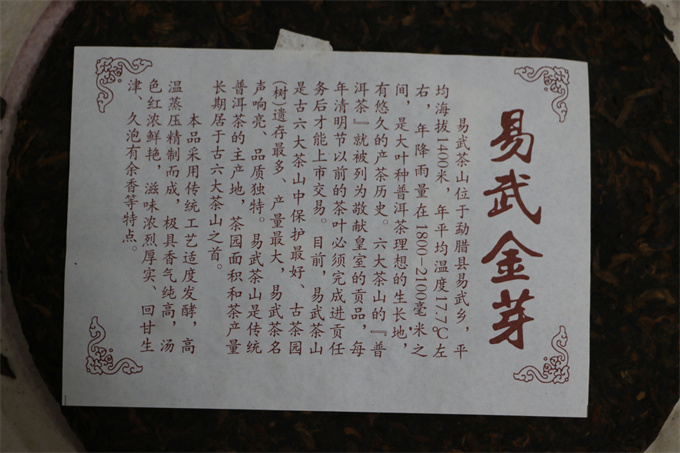 易武金芽
易武茶山位于勐腊县易武乡，平
均海拔1400米，年平均温度17.7℃左
右，年降雨量在1800—2100毫米之
间，是大叶种普洱茶理想的生长地，
有悠久的产茶历史。六大茶山的『普
洱茶』就被列为敬献皇室的贡品，每
年清明节以前的茶叶必须完成进贡任
务后才能上市交易。目前，易武茶山
是古六大茶山中保护最好、古茶园
(树)遗存最多、产量最大，易武茶名
声响亮、品质独特。易武茶山是传统
普洱茶的主产地，茶园面积和茶产量
长期居于古六大茶山之首。
本品采用传统工艺适度发酵，高
温蒸压精制而成，极具香气纯高，汤
色红浓鲜艳，滋味浓烈厚实、回甘生
津、久泡有余香等特点。